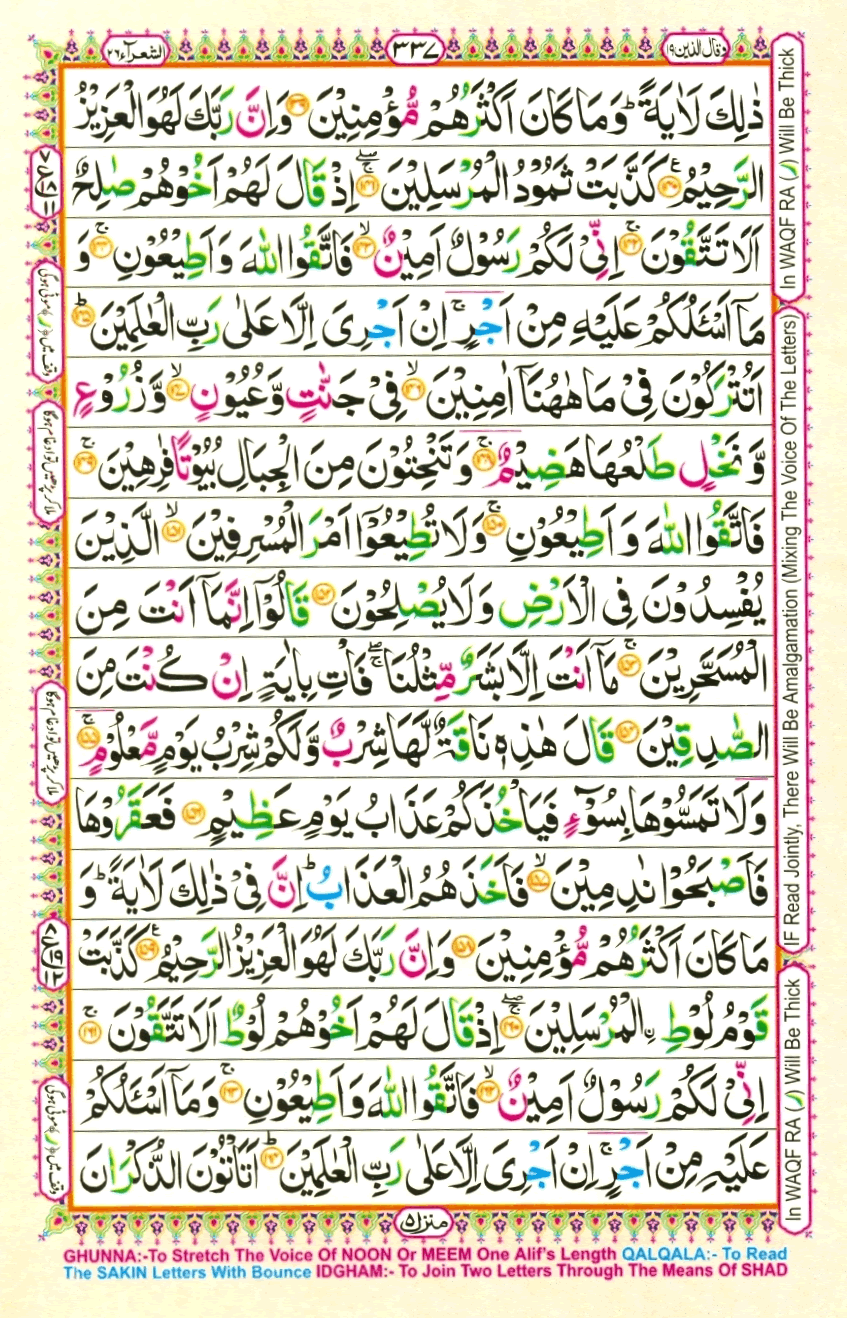 وقال الذين ١٩
٣٣٧
الشعرآء ٢٦
ذٰلِكَ لَاٰيَةً ؕ وَمَا كَانَ اَكْثَرُهُمْ مُّؤْمِنِيْنَ ﴿۱۳۹﴾ وَاِنَّ رَبَّكَ لَهُوَ الْعَزِيْزُ
الرَّحِيْمُ ﴿۱۴۰﴾ كَذَّبَتْ ثَمُوْدُ الْمُرْسَلِيْنَ ﴿۱۴۱﴾ اِذْ قَالَ لَهُمْ اَخُوْهُمْ صٰلِحٌ
اَلَا تَتَّقُوْنَ ﴿۱۴۲﴾ اِنِّىْ لَكُمْ رَسُوْلٌ اَمِيْنٌ ﴿۱۴۳﴾ فَاتَّقُوا اللّٰهَ وَ اَطِيْعُوْنِ ﴿۱۴۴﴾ وَ
مَاۤ اَسْـَٔلُكُمْ عَلَيْهِ مِنْ اَجْرٍ ۚ اِنْ اَجْرِىَ اِلَّا عَلٰى رَبِّ الْعٰلَمِيْنَ ﴿۱۴۵﴾
اَتُتْرَكُوْنَ فِىْ مَا هٰهُنَاۤ اٰمِنِيْنَ ﴿۱۴۶﴾ فِىْ جَنّٰتٍ وَّعُيُوْنٍ ﴿۱۴۷﴾ وَّزُرُوْعٍ
وَّ نَخْلٍ طَلْعُهَا هَضِيْمٌ ﴿۱۴۸﴾ وَتَنْحِتُوْنَ مِنَ الْجِبَالِ بُيُوْتًا فٰرِهِيْنَ ﴿۱۴۹﴾
فَاتَّقُوا اللّٰهَ وَ اَطِيْعُوْنِ ﴿۱۵۰﴾ وَلَا تُطِيْعُوْۤا اَمْرَ الْمُسْرِفِيْنَ ﴿۱۵۱﴾ الَّذِيْنَ
يُفْسِدُوْنَ فِى الْاَرْضِ وَلَا يُصْلِحُوْنَ ﴿۱۵۲﴾ قَالُوْۤا اِنَّمَاۤ اَنْتَ مِنَ
الْمُسَحَّرِيْنَ ﴿۱۵۳﴾ مَاۤ اَنْتَ اِلَّا بَشَرٌ مِّثْلُنَا ۖۚ فَاْتِ بِاٰيَةٍ اِنْ كُنْتَ مِنَ
الصّٰدِقِيْنَ ﴿۱۵۴﴾ قَالَ هٰذِهٖ نَاقَةٌ لَّهَا شِرْبٌ وَّلَكُمْ شِرْبُ يَوْمٍ مَّعْلُوْمٍ ﴿۱۵۵﴾
وَلَا تَمَسُّوْهَا بِسُوْٓءٍ فَيَاْخُذَكُمْ عَذَابُ يَوْمٍ عَظِيْمٍ ﴿۱۵۶﴾ فَعَقَرُوْهَا
فَاَصْبَحُوْا نٰدِمِيْنَ ﴿۱۵۷﴾ فَاَخَذَهُمُ الْعَذَابُ ؕ اِنَّ فِىْ ذٰلِكَ لَاٰيَةً ؕ وَ
مَا كَانَ اَكْثَرُهُمْ مُّؤْمِنِيْنَ ﴿۱۵۸﴾ وَاِنَّ رَبَّكَ لَهُوَ الْعَزِيْزُ الرَّحِيْمُ ﴿۱۵۹﴾ كَذَّبَتْ
قَوْمُ لُوْطِ ۨالْمُرْسَلِيْنَ ﴿۱۶۰﴾ اِذْ قَالَ لَهُمْ اَخُوْهُمْ لُوْطٌ اَلَا تَتَّقُوْنَ ﴿۱۶۱﴾
اِنِّىْ لَكُمْ رَسُوْلٌ اَمِيْنٌ ﴿۱۶۲﴾ فَاتَّقُوا اللّٰهَ وَاَطِيْعُوْنِ ﴿۱۶۳﴾ وَمَاۤ اَسْـَٔلُكُمْ
عَلَيْهِ مِنْ اَجْرٍ ۚ اِنْ اَجْرِىَ اِلَّا عَلٰى رَبِّ الْعٰلَمِيْنَ ﴿۱۶۴﴾ اَتَاْتُوْنَ الذُّكْرَانَ
منزل ٥
In WAQF RA (ر) Will Be Thick
IF Read Jointly, There Will Be Amalgamation (Mixing The Voice Of The Letters)
In WAQF RA (ر) Will Be Thick
وقف میں (ر) موٹی ہوگی
ملا کر پڑھیں تو ادغام ہوگا
ملا کر پڑھیں تو ادغام ہوگا
وقف میں (ر) موٹی ہوگی
GHUNNA:-To Stretch The Voice Of NOON Or MEEM One Alif's Length QALQALA:- To Read
The SAKIN Letters With Bounce IDGHAM:- To Join Two Letters Through The Means Of SHAD